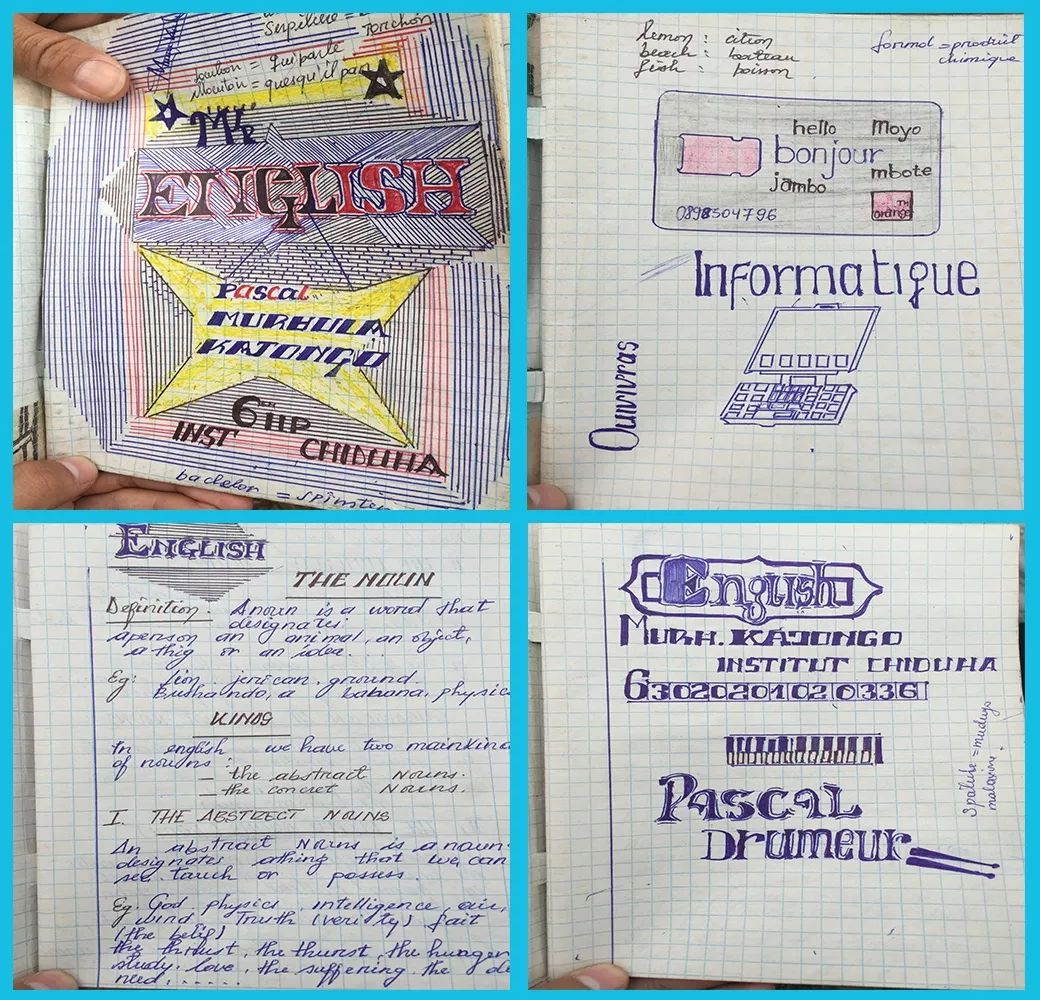 = Torchon
Serpiliere =
bouchon = qui parle
Mouton = quesqu'il pan
Mr
ENGLISH
Pascal
MURHULA
KAJONGO
6iè HP
INST CHIDUHA
bachelor = spinster
lemon : citron
beach : bateau
fish : poisson
formol = produit
chimique
hello Moyo
bonjour
jambo mbote
0898504796
orange
Informatique
Ouvivras
ENGLISH
THE NOUN
Definition. A noun is a word that
designates:
a person an animal, an object,
a thig or an idea...
Eg: lion, jerican, ground.
Bushando, a kabana, physic
KINDS
In english we have two main kind
of nouns:
_ the abstract Nouns.
_ the concret Nouns.
I. THE ABSTRECT NOUNS
An abstract Nouns is a noun
designates athing that we can
see, tauch or possess.
Eg. God, physics, intelligence, air,
wind, Truth (verity) fait
(the belif)
the thrust, the thurst, the hunger
study, love, the suffering, the de
need, .....
English
MURH. KAJONGO
INSTITUT CHIDUHA
63020201020336
PASCAL
Drumeur